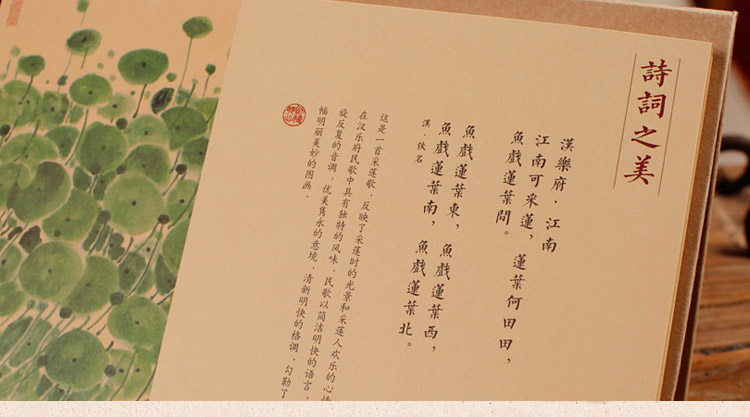 詩詞之美
漢樂府·江南
江南可采蓮，蓮葉何田田，
魚戲蓮葉間。
魚戲蓮葉東，魚戲蓮葉西，
魚戲蓮葉南，魚戲蓮葉北。
漢·佚名
这是一首采莲歌，反映了采莲时的光景和采莲人欢乐的心情
在汉乐府民歌中具有独特的风味。民歌以简洁明快的语言，
旋反复的音调，优美隽永的意境，清新明快的格调，勾勒了
幅明丽美妙的图画。